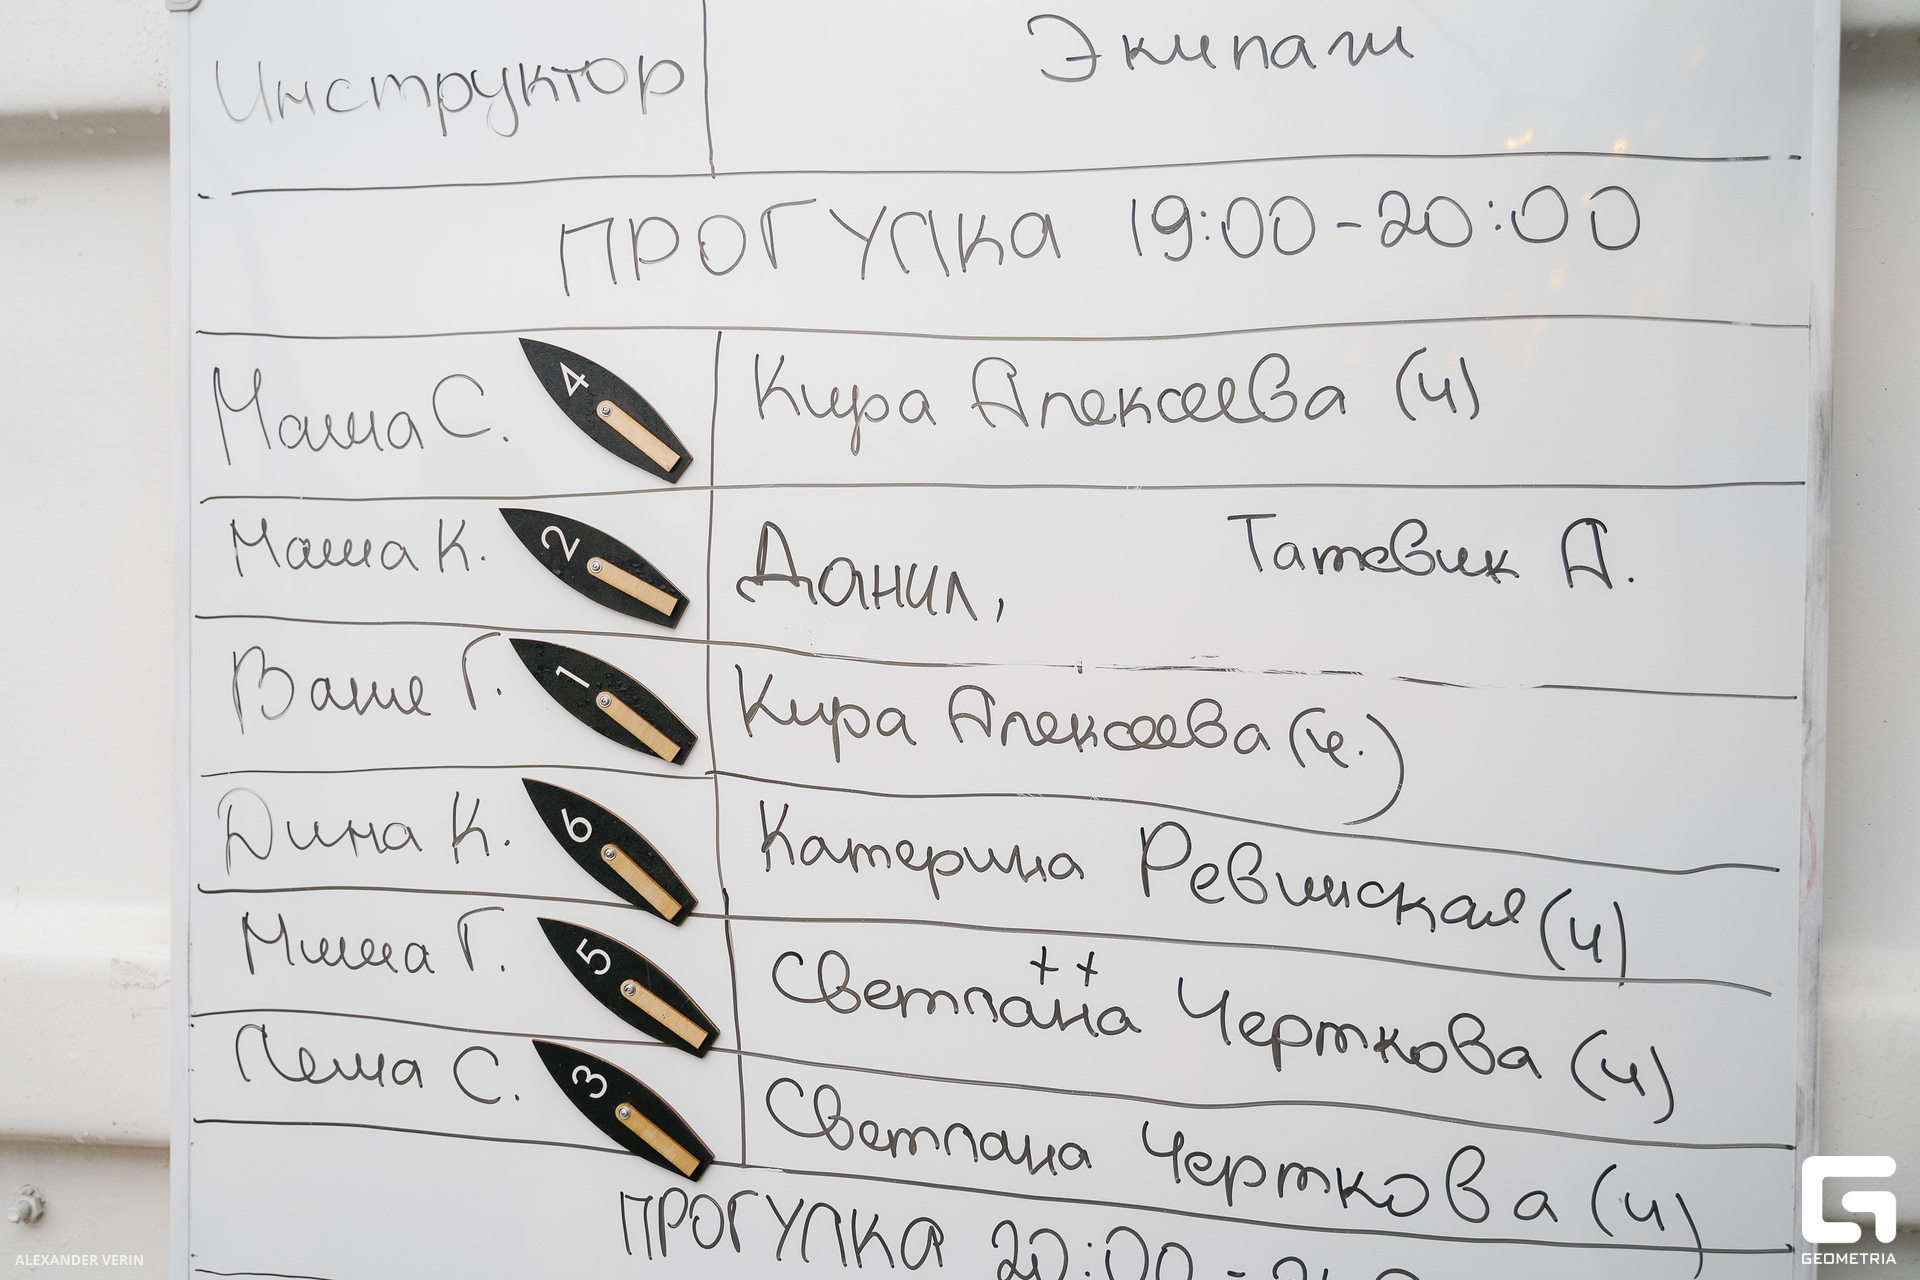 Инструктор Экипаж
ПРОГУЛКА 19:00-20:00
Маша С. 4 Кира Алексеева (4)
Маша К. 2 Данил, Татевик А.
Ваше Г. 1 Кира Алексеева (ч.)
Дина К. 6 Катерина Ревинская (4)
Миша Г. 5 Светлана Черткова (4)
++
Леша С. 3 Светлана Черткова (4)
ПРОГУЛКА 20:00 -
ALEXANDER VERIN
GEOMETRIA